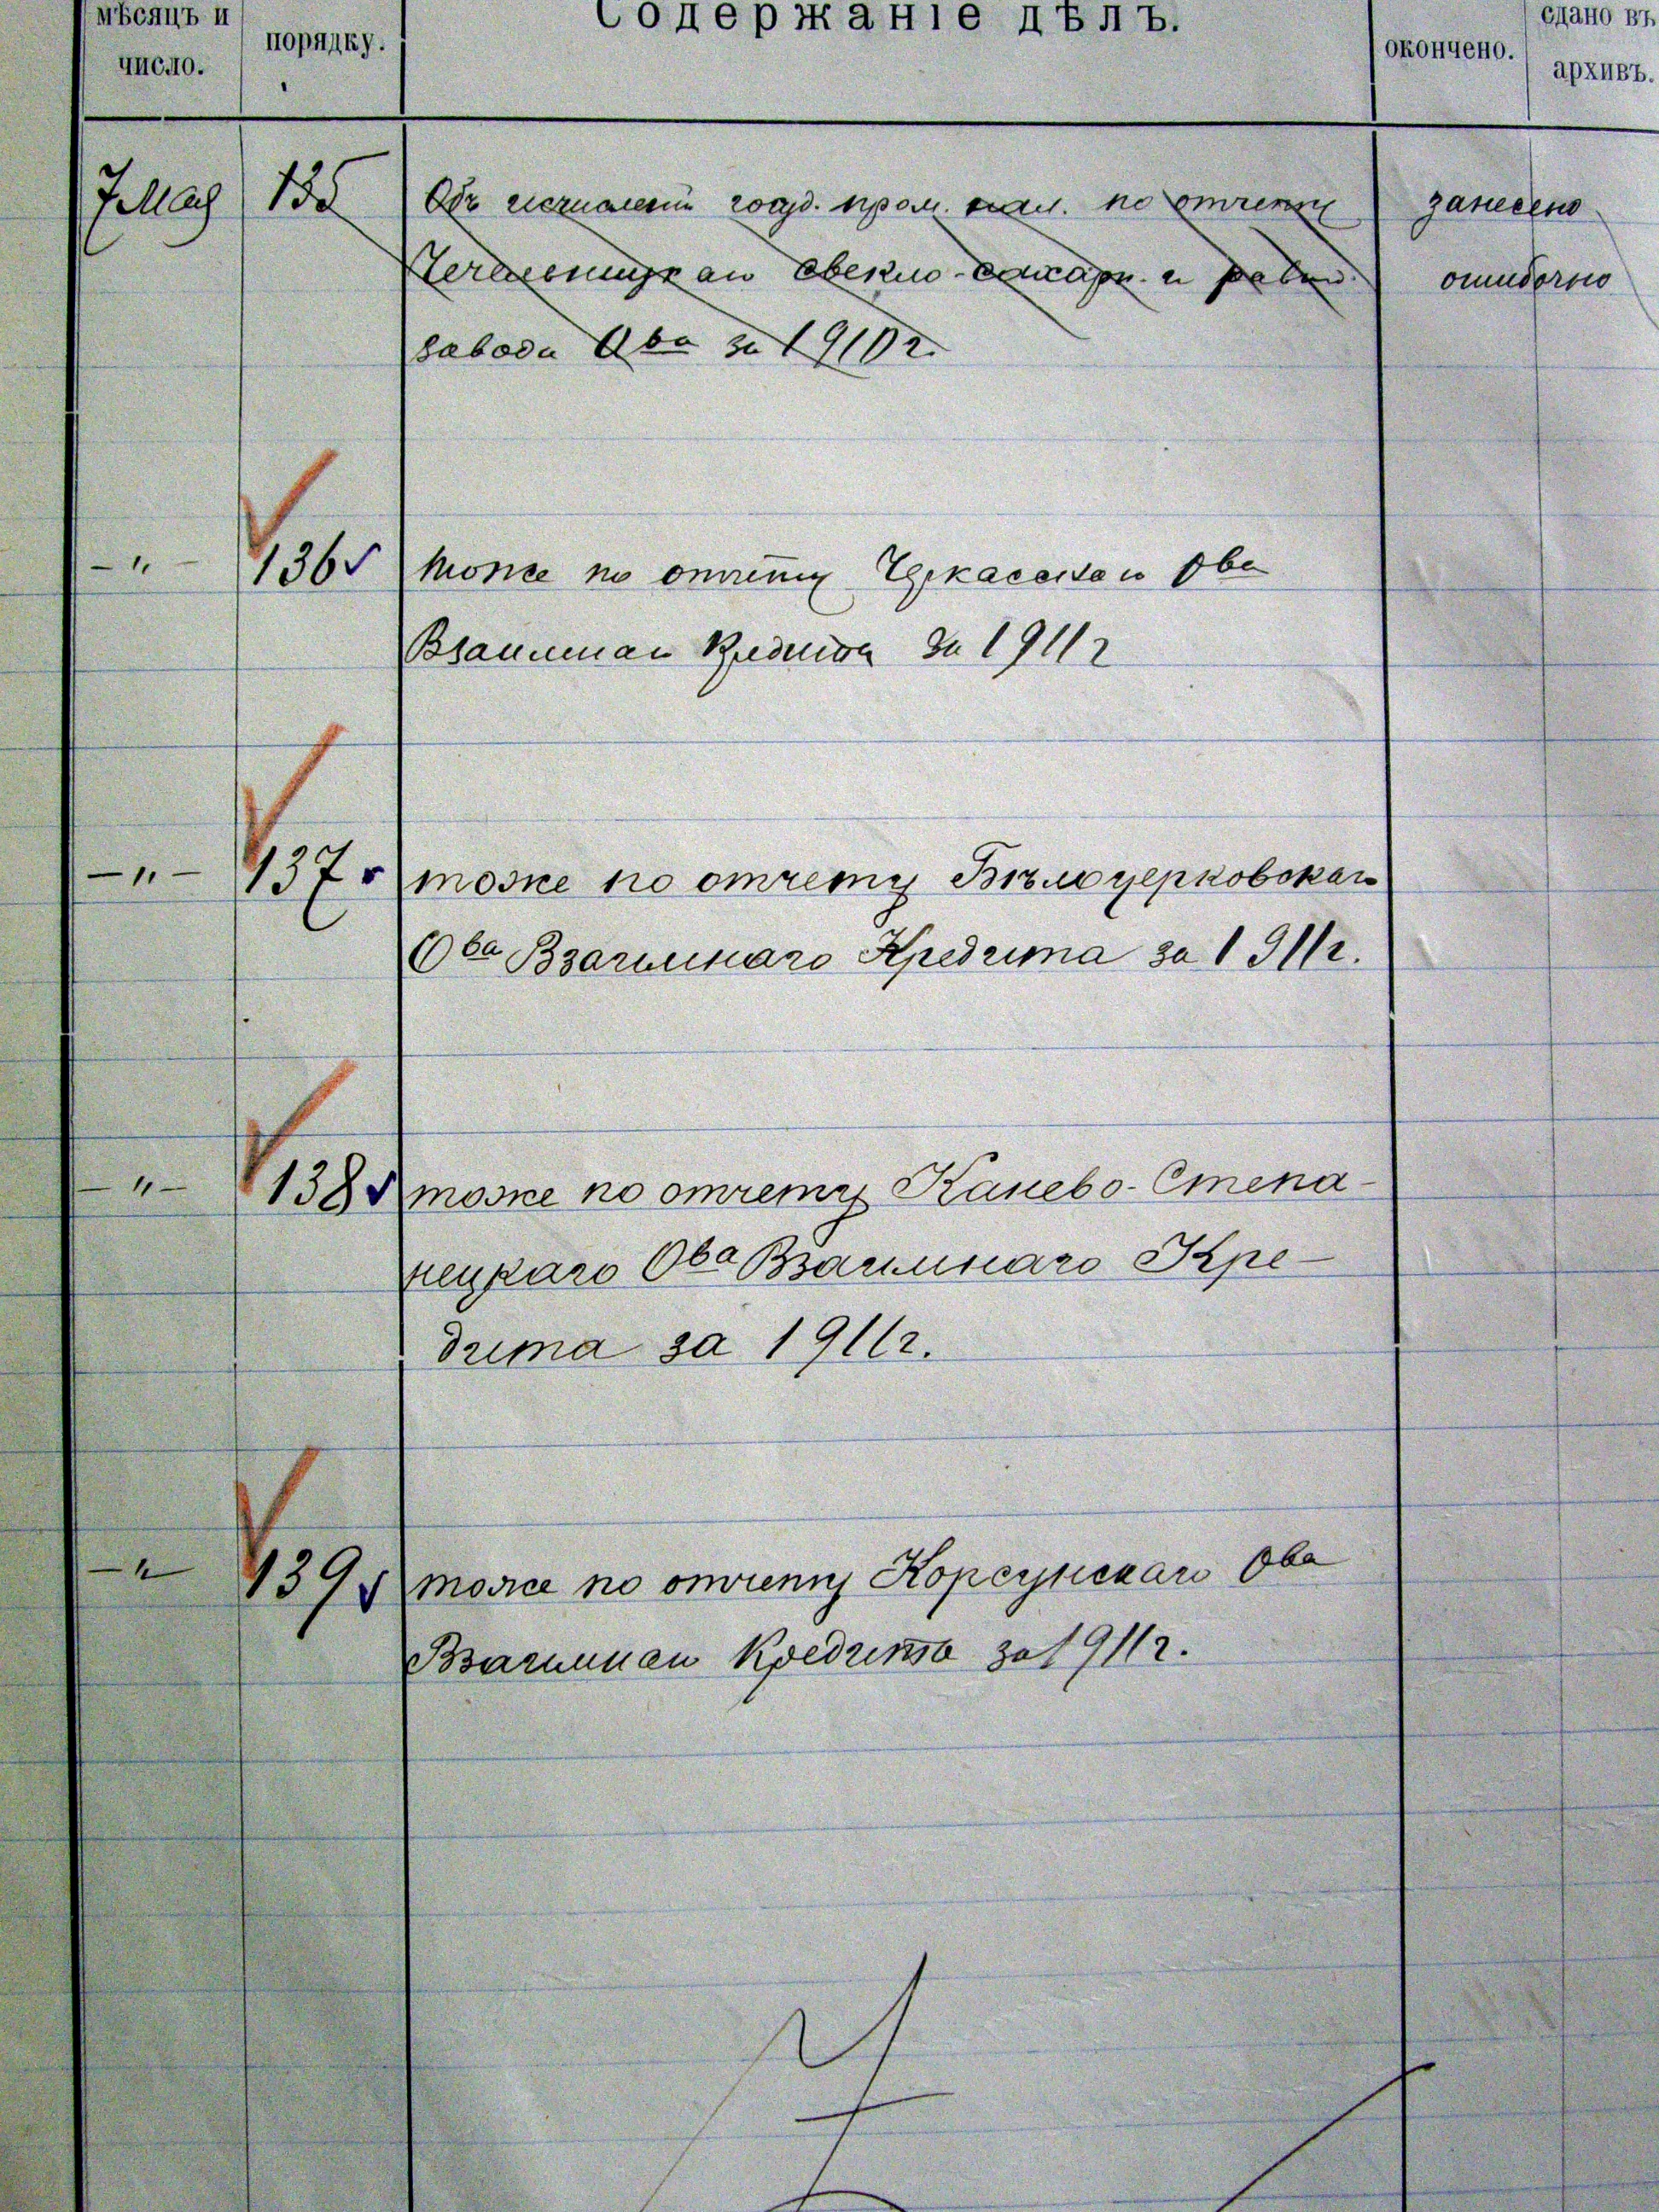 мѣсяцъ и
число.
порядку.
Содержаніе дѣлъ.
окончено.
сдано въ
архивъ.
7 Мая 135 Объ исчисленіи госуд. пром. нал. по отчету занесено
свекло-сахарн. и рафин. ошибочно
завода Ова за 1910 г.
-"- 136 тоже по отчету Черкасскаго Ова
Взаимнаго Кредита за 1911 г
-"- 137 тоже по отчету Бѣлоцерковскаго
Ова Взаимнаго Кредита за 1911 г.
-"- 138 тоже по отчету Канево-Степа-
нецкаго Ова Взаимнаго Кре-
дита за 1911 г.
-"- 139 тоже по отчету Корсунскаго Ова
Взаимнаго Кредита за 1911 г.